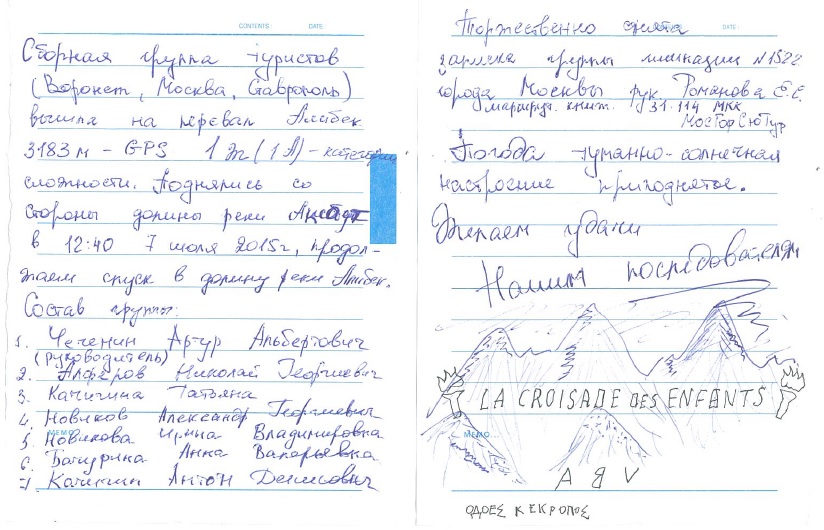 CONTENTS DATE
Сборная группа туристов
(Воронеж, Москва, Ставрополь)
вышла на перевал Алибек
3183 м - GPS 1Ж (1А) - категории
сложности. Поднялись со
стороны долины реки
в 12:40 7 июля 2015г, продол-
жаем спуск в долину реки Алибек.
Состав группы:
1. Чеченин Артур Альбертович
(руководитель)
2. Алфёров Николай Георгиевич
3. Качигина Татьяна
4. Новиков Александр Георгиевич
5. Новикова Ирина Владимировна
MEMO
6. Батурина Анна Валерьевна
7. Качигин Антон Денисович
DATE
Торжественно снята
записка группы №1522
города Москвы рук. Романова Е.Е.
маршрут. книж. 31-114 МКК
МосГорСЮТур
Погода туманно-солнечная
настроение приподнятое.
Желаем удачи
Нашим последователям
LA CROISADE DES ENFANTS
MEMO
A B V
ОДОЕС КЕКРОПОС